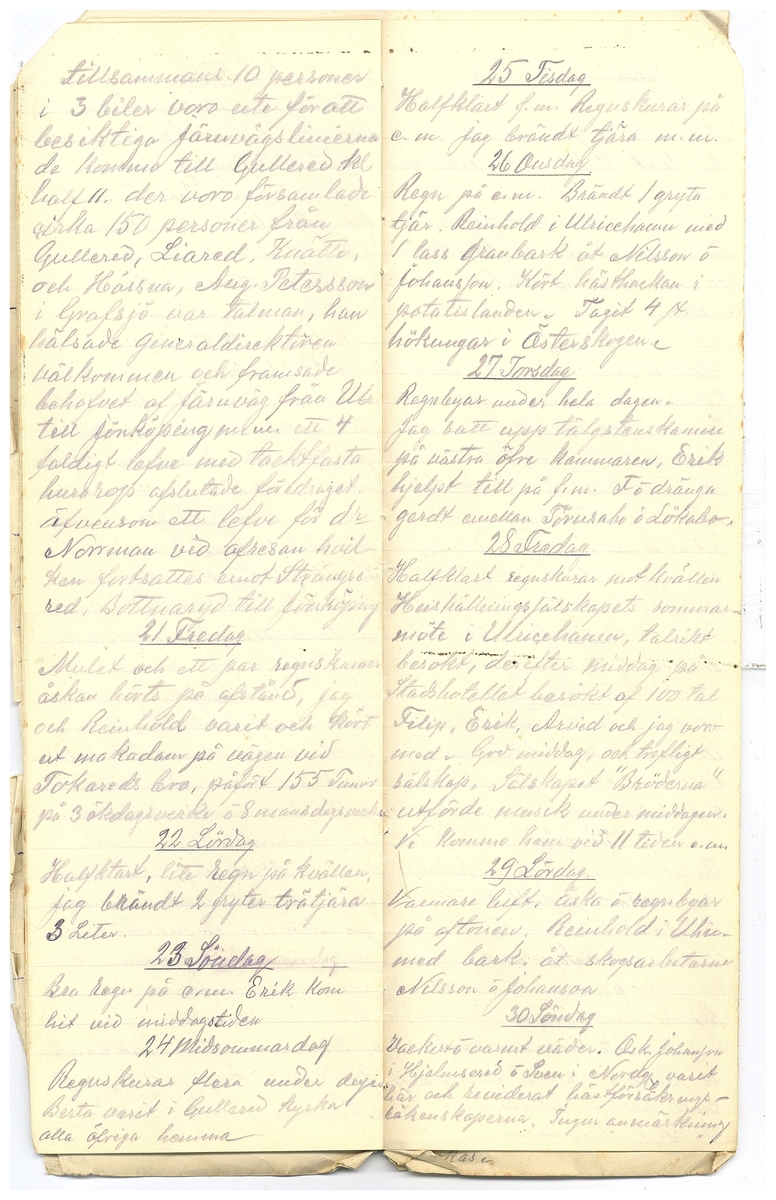 tillsammans 10 personer
i 3 biler voro ute för att
besiktiga järnvägslinierna
de kommo till Gullered kl
half 11. der voro församlade
cirka 150 personer från
Gullered, Liared, Knätte,
och Hössna, Aug. Petersson
i Grafsjö var talman, han
hälsade Generaldirektören
välkommen och framsade
behofvet af järnväg från Ul-
till Jönköping m.m. ett 4
faldigt lefve med taktfasta
hurrarop afslutade föredraget
äfvensom ett lefve för dr
Norrman vid afresan hvil-
ken fortsattes emot Strängse-
red, Bottnaryd till Jönköping
21 Fredag
Mulet och ett par regnskurar
åskan hörts på afstånd, jag
och Reinhold varit och kört
ut makadam på vägen vid
Tokareds bro, påfört 155 Tunnor
på 3 ökdagsverke ö 8 mansdagsverke
22 Lördag
Halfklart, lite regn på kvällen,
jag brändt 2 gryter trätjära
3 Liter.
23 Söndag
Bra regn på e.m. Erik kom
hit vid middagstiden
24 Midsommardag
Regnskurar flera under dagen
Berta varit i Gullered kyrka
alla öfriga hemma
25 Tisdag
Halfklart f.m. Regnskurar på
e.m. jag brändt tjära m.m.
26 Onsdag
Regn på e.m. Brändt 1 gryta
tjär. Reinhold i Ulricehamn med
1 lass Granbark åt Nilsson ö
Johansson. Kört hästhackan i
potatislanden. Tagit 4 st.
hökungar i Österskogen.
27 Torsdag
Regnbyar under hela dagen.
Jag satt upp täljstenskamin
på västra öfre kammaren, Erik
hjelpt till på f.m. F ö dränga
gerdt emellan Törnsabo ö Lökabo.
28 Fredag
Halfklart regnskurar mot kvällen
Hushållningssälskapets sommar-
möte i Ulricehamn, talrikt
besökt, derefter middag på
Stadshotellet besökt af 100 tal
Filip, Erik, Arvid och jag voro
med. God middag, och trefligt
sälskap. Sälskapet "Bröderna"
utförde musik under middagen.
Vi kommo hem vid 11 tiden e.m
29 Lördag.
Varmare luft. åska ö regnbyar
på aftonen. Reinhold i Ulri-
med bark åt skogsarbetarne
Nilsson ö Johanson
30 Söndag
Vackert ö varmt väder. Osk. Johanson
i Hjelmered ö Sven i Nordg. varit
här och reviderat hästförsäkrings-
räkenskaperna. Ingen anmärkning